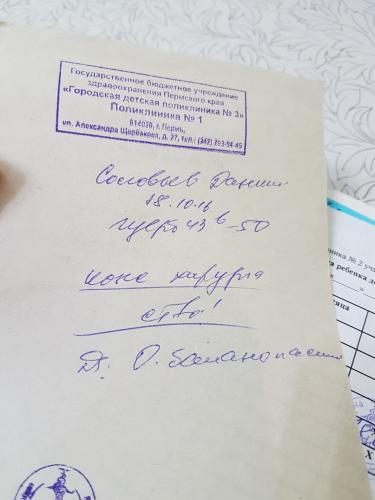 Государственное бюджетное учреждение
здравоохранения Пермского края
«Городская детская поликлиника № 3»
Поликлиника № 1
614026, г. Пермь,
ул. Александра Щербакова, д. 27, тел.: (342) 263-94-45
Соловьев Даниил
18.10.16
43 в -50
конс хирурга
ства!
Ds. О. баланопостит